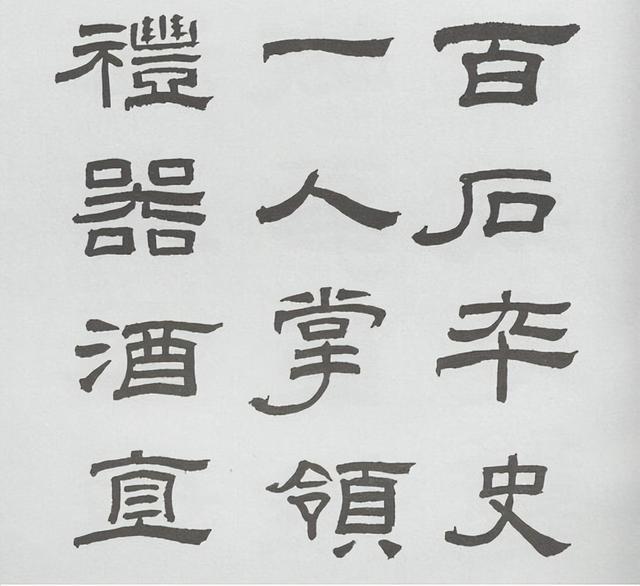 百石卒史
一人掌領
禮器酒直